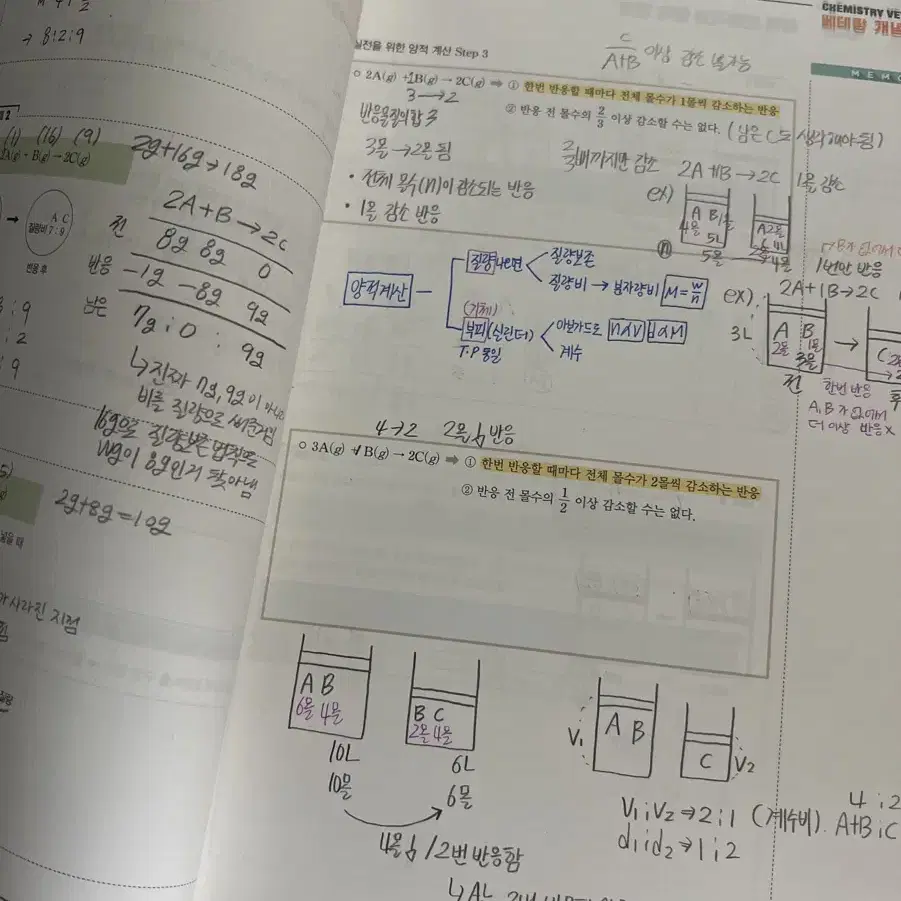 → 8:2:9
(1) (16) (9)
2g+16g → 18g
A C
질량비 7:9
반응 후
2A+B → 2C
전 8g 8g 0
반응 -1g -8g 9g
남은 7g : 0 : 9g
↳ 진짜 7g, 9g이
비를 질량으로
16g으로 질량보존 법칙으로
Wg이 8g인거 찾아냄
2g+8g=10g
넣을 때
사라진 지점
CHEMISTRY VE
베테랑 개념
MEMO
실전을 위한 양적 계산 Step 3
C/A+B 이상 감소 불가능
○ 2A(g) + 1B(g) → 2C(g) ⇒ ① 한번 반응할 때마다 전체 몰수가 1몰씩 감소하는 반응
3 → 2
② 반응 전 몰수의 2/3 이상 감소할 수는 없다. (남은 C도 생각해야 됨)
반응물질의 합 3
3몰 → 2몰 됨
2/3배까지만 감소
2A+1B → 2C 1몰 감소
• 전체 몰수(n)이 감소되는 반응
• 1몰 감소 반응
ex)
A B
4몰 1몰
5L
5몰
4L
4몰
양적계산
질량 나오면
질량보존
질량비 → 분자량비 M=w/n
(기체)
부피(실린더)
T.P 동일
아보가드로 n∝V d∝M
계수
1번만 반응
ex) 2A+1B→2C
3L
A B
2몰 1몰
3몰
전
C
후
한번 반응
A, B가 없어서
더 이상 반응 X
4→2 2몰↓ 반응
○ 3A(g) + B(g) → 2C(g) ⇒ ① 한번 반응할 때마다 전체 몰수가 2몰씩 감소하는 반응
② 반응 전 몰수의 1/2 이상 감소할 수는 없다.
A B
6몰 4몰
10L
10몰
B C
2몰 4몰
6L
6몰
4몰↓ / 2번 반응함
V₁
A B
C
V₂
V₁:V₂ → 2:1 (계수비)
d₁:d₂ → 1:2
4:2
A+B:C